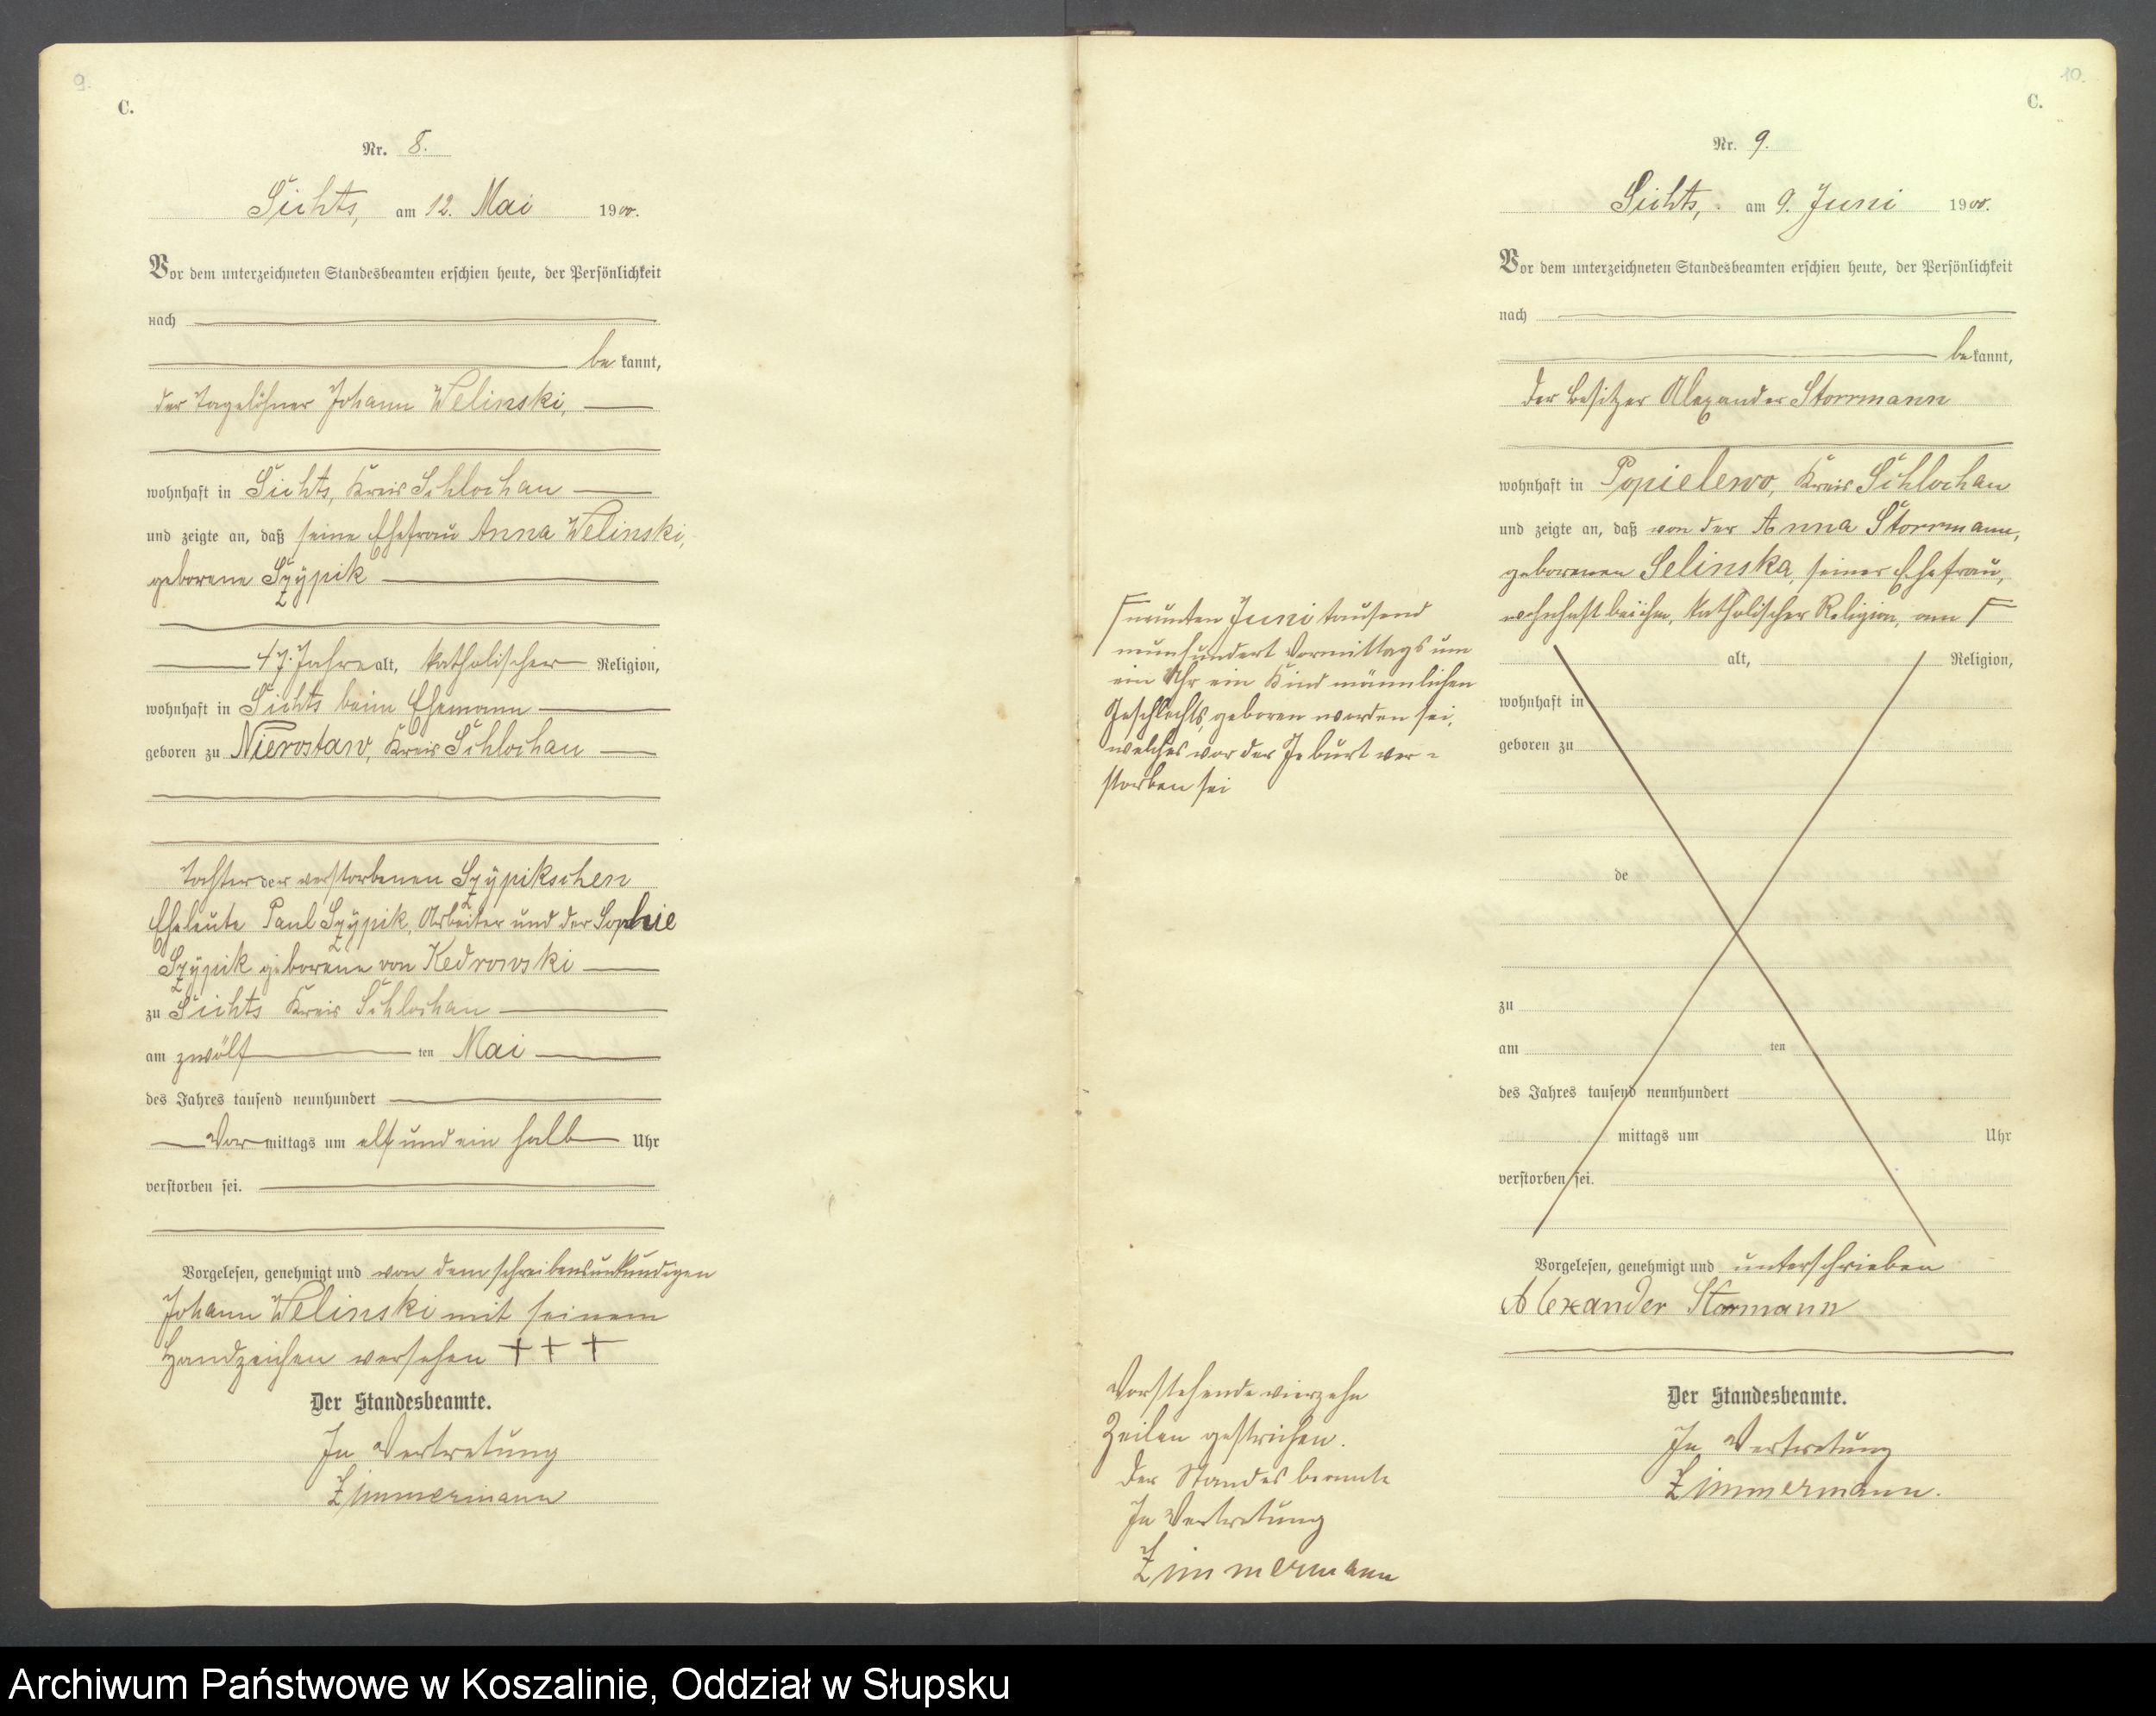 9.
C.
Nr. 8.
Sichts, am 12. Mai 1900.
Vor dem unterzeichneten Standesbeamten erschien heute, der Persönlichkeit
nach
be kannt,
der Tagelöhner Johann Welinski,
wohnhaft in Sichts, Kreis Schlochau
und zeigte an, daß seine Ehefrau Anna Welinski,
geborene Szÿpik
47 Jahre alt, katholischer Religion,
wohnhaft in Sichts beim Ehemann
geboren zu Nierostaw, Kreis Schlochau
Tochter der verstorbenen Szÿpikschen
Eheleute Paul Szÿpik, Arbeiter und der Sophie
Szÿpik geborene von Kedrowski
zu Sichts Kreis Schlochau
am zwölf ten Mai
des Jahres tausend neunhundert
Vor mittags um elf und ein halb Uhr
verstorben sei.
Vorgelesen, genehmigt und von dem schreibensunkundigen
Johann Welinski mit seinem
Handzeichen versehen + + +
Der Standesbeamte.
In Vertretung
Zimmermann
10.
C.
Nr. 9.
Sichts, am 9. Juni 1900.
Vor dem unterzeichneten Standesbeamten erschien heute, der Persönlichkeit
nach
be kannt,
der Besitzer Alexander Storrmann
wohnhaft in Popielewo, Kreis Schlochau
und zeigte an, daß von der Anna Storrmann,
geborenen Selinska, seiner Ehefrau,
wohnhaft bei ihm, katholischer Religion, am
neunten Juni tausend
neunhundert Vormittags um
ein Uhr ein Kind männlichen
Geschlechts geboren worden sei,
welches vor der Geburt ver-
storben sei
alt, Religion,
wohnhaft in
geboren zu
de
zu
am ten
des Jahres tausend neunhundert
mittags um Uhr
verstorben sei.
Vorgelesen, genehmigt und unterschrieben
Alexander Stormann
Der Standesbeamte.
In Vertretung
Zimmermann.
Vorstehende vierzehn
Zeilen gestrichen.
Der Standesbeamte
In Vertretung
Zimmermann
Archiwum Państwowe w Koszalinie, Oddział w Słupsku